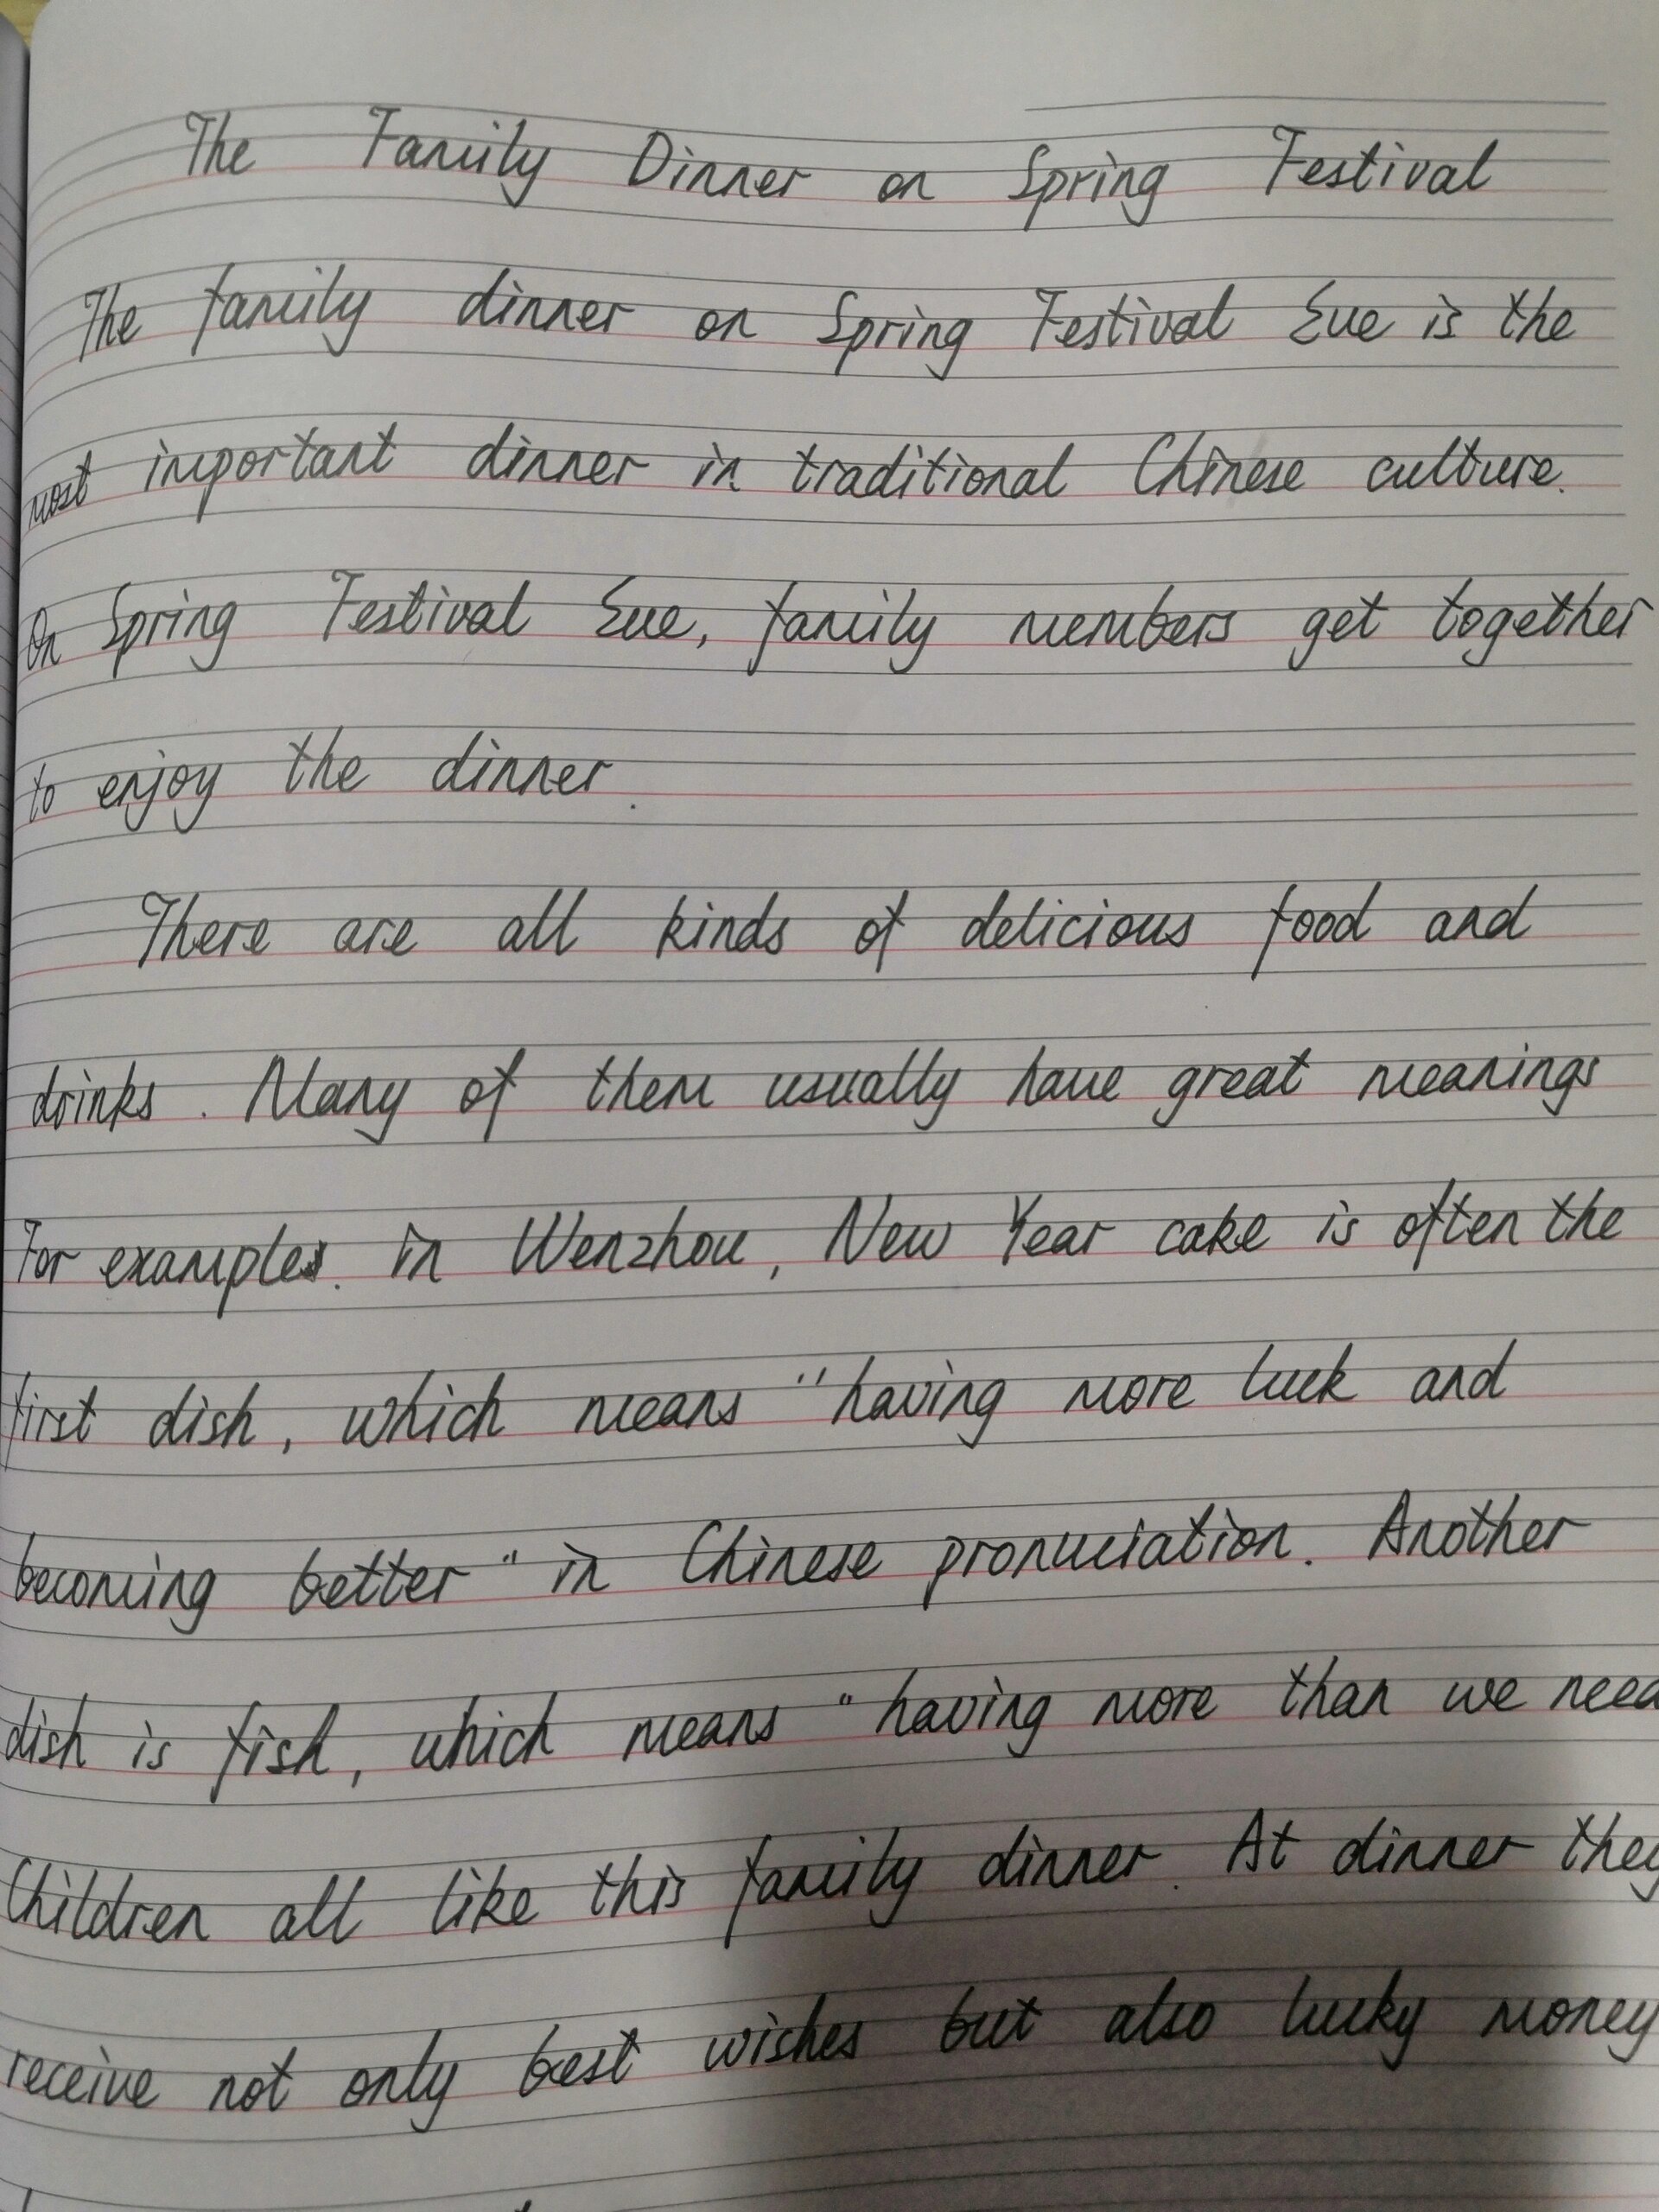 The Family Dinner on Spring Festival
The family dinner on Spring Festival Eve is the
most important dinner in traditional Chinese culture.
On Spring Festival Eve, family members get together
to enjoy the dinner.
There are all kinds of delicious food and
drinks. Many of them usually have great meanings
For examples. in Wenzhou, New Year cake is often the
first dish, which means "having more luck and
becoming better" in Chinese pronuciation. Another
dish is fish, which means "having more than we need
Children all like this family dinner. At dinner they
receive not only best wishes but also lucky money